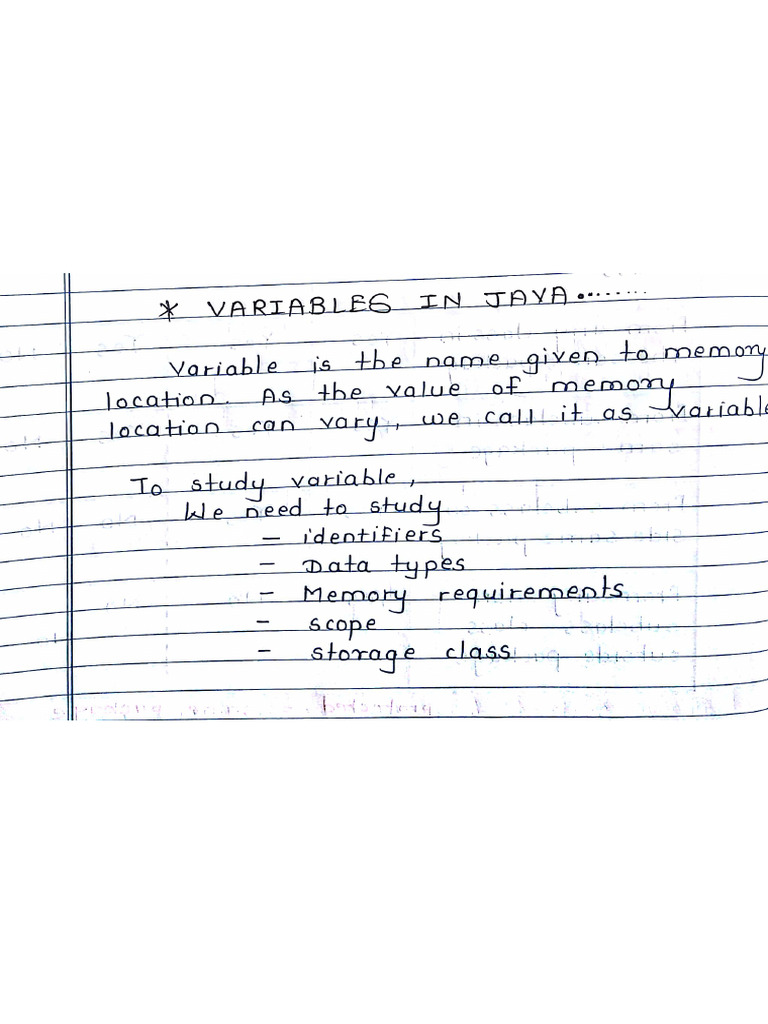 * VARIABLES IN JAVA.........
Variable is the name given to memory
location. As the value of memory
location can vary, we call it as variable
To study variable,
We need to study
- identifiers
- Data types
- Memory requirements
- scope
- storage class